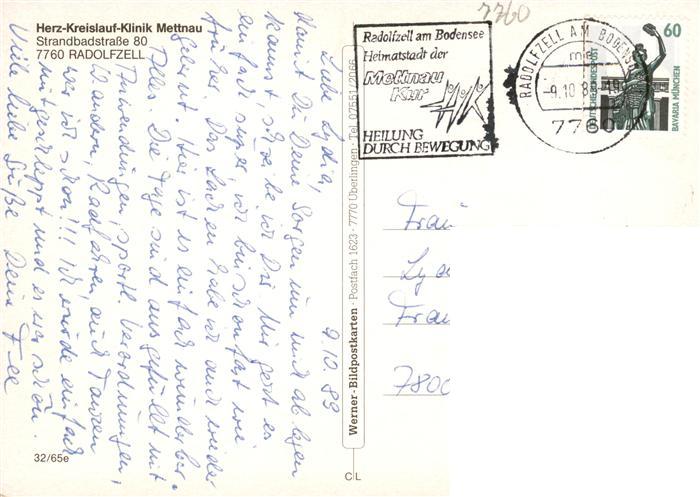 Herz-Kreislauf-Klinik Mettnau
Strandbadstraße 80
7760 RADOLFZELL
7760
Radolfzell am Bodensee
Heimatstadt der
Mettnau
Kur
HEILUNG
DURCH BEWEGUNG
RADOLFZELL AM BODENSEE
-9.10.8
7760
60
DEUTSCHE BUNDESPOST
BAVARIA MÜNCHEN
9.10.89
Liebe Lydia,
damit Du Deine Sorgen um mich ablegen
kannst, schreibe ich Dir. Mir geht es
einfach super, ich bin schon fast wie
früher. Das Lachen habe ich auch wieder
gelernt. Hier ist es einfach wunderbar.
Alles. Die Tage sind ausgefüllt mit
Anwendungen, sportl. Verordnungen,
Wandern, Radfahren, auch Tanzen
war ich schon!!! Ich wurde einfach
mitgeschleppt und es war schön.
Viele liebe Grüße Deine Fee
Werner-Bildpostkarten · Postfach 1623 · 7770 Überlingen · Tel. 07551/2066
Frau
Lyd
Frau
7800
32/65e
C L